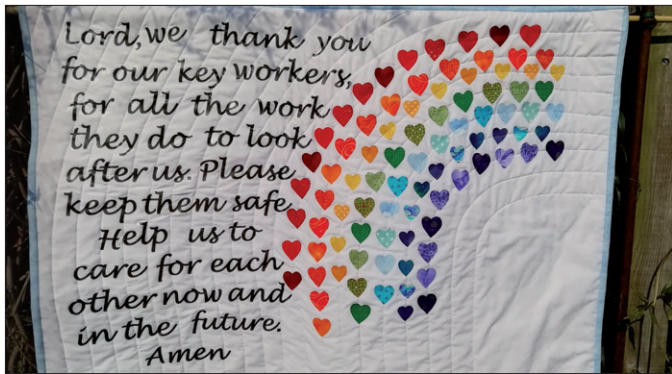 Lord, we thank you
for our key workers,
for all the work
they do to look
after us. Please
keep them safe.
Help us to
care for each
other now and
in the future.
Amen